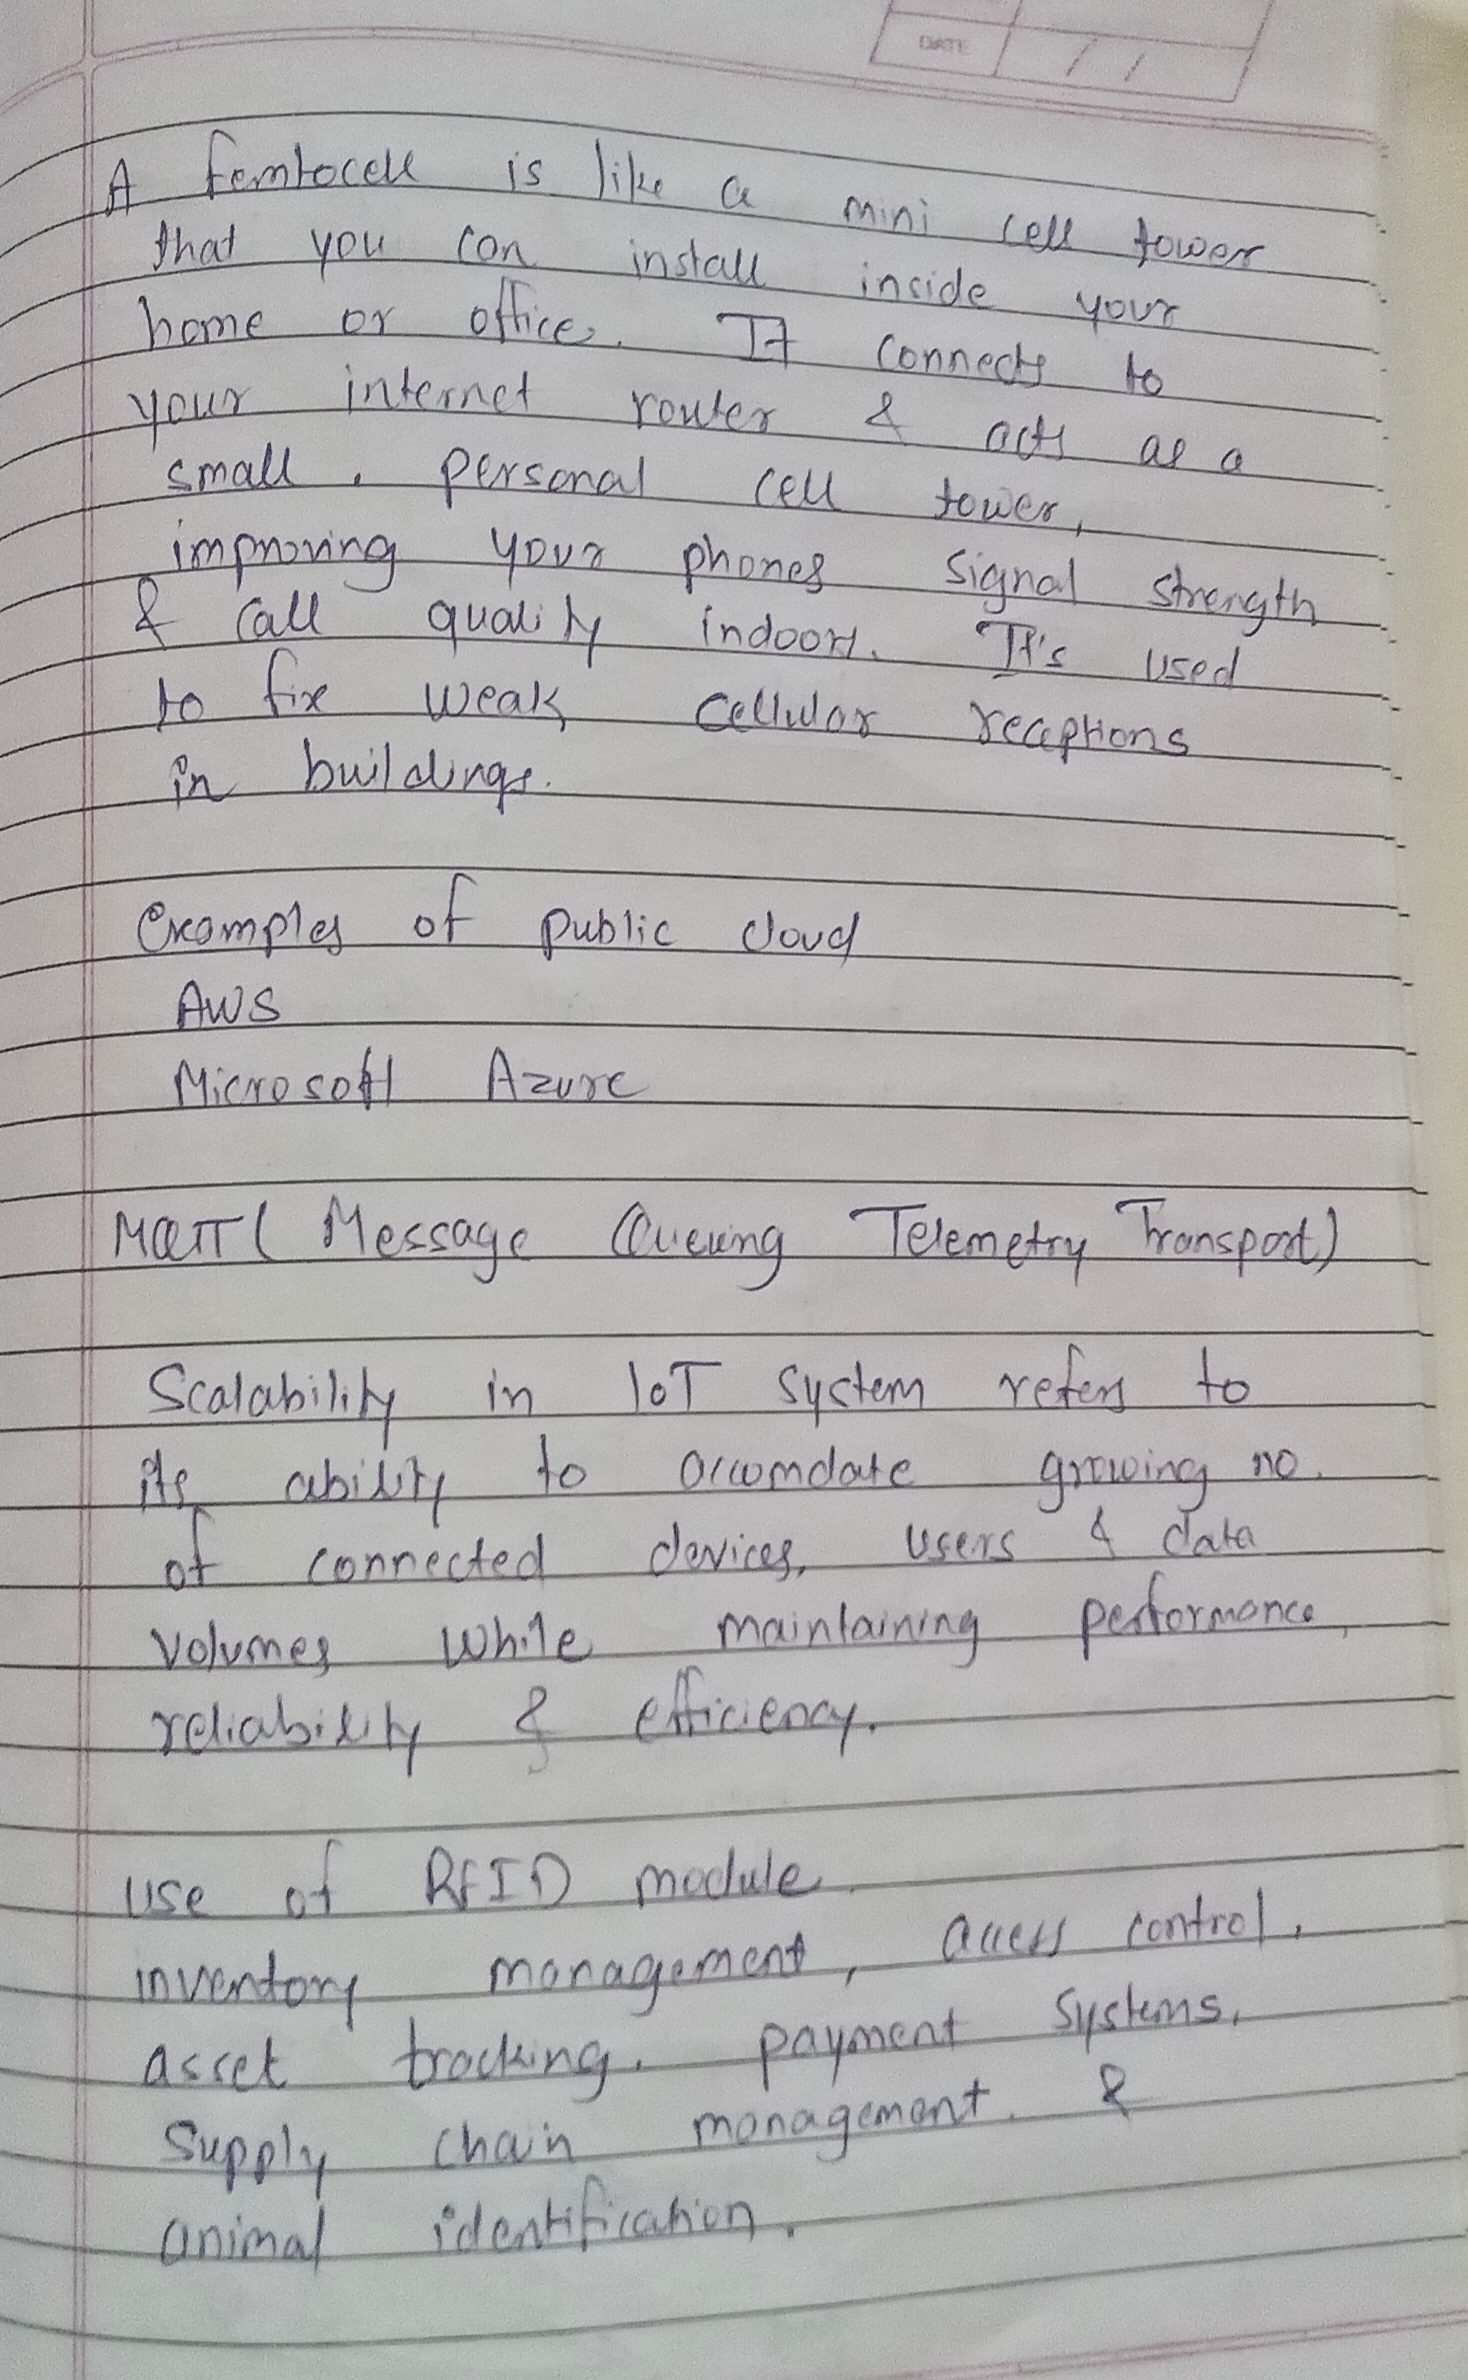 DATE / /
A femtocell is like a mini cell tower
that you can install inside your
home or office. It connects to
your internet router & acts as a
small, personal cell tower,
improving your phones signal strength
& call quality indoors. It's used
to fix weak cellular receptions
in buildings.
Examples of public cloud
AWS
Microsoft Azure
MQTT ( Message Queuing Telemetry Transport)
Scalability in IoT system refers to
its ability to accomdate growing no.
of connected devices, users & data
volumes while maintaining performance,
reliability & efficiency.
use of RFID module.
inventory management, access control,
asset tracking, payment systems,
supply chain management. &
animal identification.